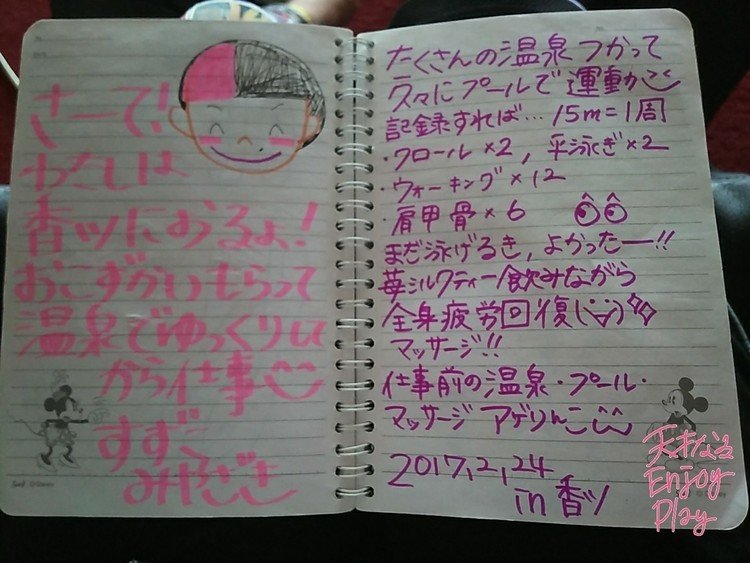 さーて!
わくしは
香ツにおるよ!
おこずかいもらって
温泉でゆっくりして
から仕事
すず
みやざき
たくさんの温泉つかって
久々にプールで運動
記録すれば… 15m=1周
・クロール×2, 平泳ぎ×2
・ウォーキング×12
・肩甲骨×6
まだ泳げるき、よかったー!!
苺ミルクティー飲みながら
全身疲労回復
マッサージ!!
仕事前の温泉・プール・
マッサージ アゲりんこ
2017,2,24
in 香ツ
Enjoy
Play